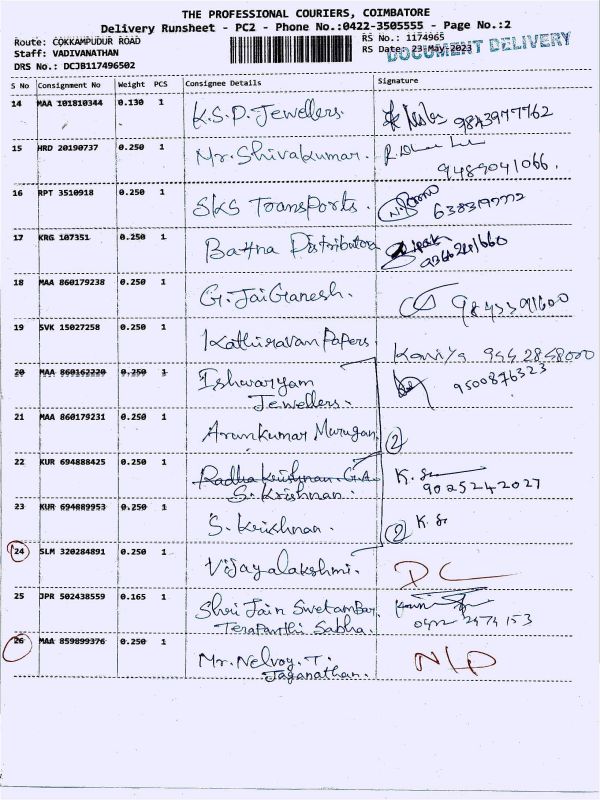 THE PROFESSIONAL COURIERS, COIMBATORE
Delivery Runsheet - PC2 - Phone No.:0422-3505555 - Page No.:2
Route: COKKAMPUDUR ROAD RS No.: 1174965
Staff: VADIVANATHAN RS Date: 23-May-2023
DOCUMENT DELIVERY
DRS No.: DCJB117496502
S No Consignment No Weight PCS Consignee Details Signature
14 MAA 101810344 0.130 1 K.S.P. Jewellers 9843977762
15 HRD 20190737 0.250 1 Mr. Shivakumar.
9489041066.
16 RPT 3510918 0.250 1 SKS Transports.
17 KRG 107351 0.250 1 Battna Distributors
18 MAA 860179238 0.250 1 G. Jai Ganesh.
19 SVK 15027258 0.250 1 Kathiravan Papers. Kaniya 9442848000
20 MAA 860162220 0.250 1 Ishwaryam
Jewellers. 9500876323
21 MAA 860179231 0.250 1 Arunkumar Murugan. 2
22 KUR 694888425 0.250 1 Radha Krishnan. G.A.
S. Krishnan. 9025242027
23 KUR 694889953 0.250 1 S. Krishnan. 2
24 SLM 320284891 0.250 1 Vijayalakshmi. DC
25 JPR 502438559 0.165 1 Shri Jain Swetambar
Terapanthi Sabha. 0422 2474153
26 MAA 859899376 0.250 1 Mr. Nelvoy. T. N/D
Jaganathan.